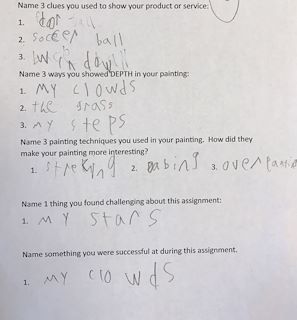 Name 3 clues you used to show your product or service:
1.
2. soccer ball
3.
Name 3 ways you showed DEPTH in your painting:
1. MY clowds
2. the grass
3. MY steps
Name 3 painting techniques you used in your painting. How did they
make your painting more interesting?
1. streking 2. dabing 3. over
Name 1 thing you found challenging about this assignment:
1. MY stars
Name something you were successful at during this assignment.
1. MY clowds